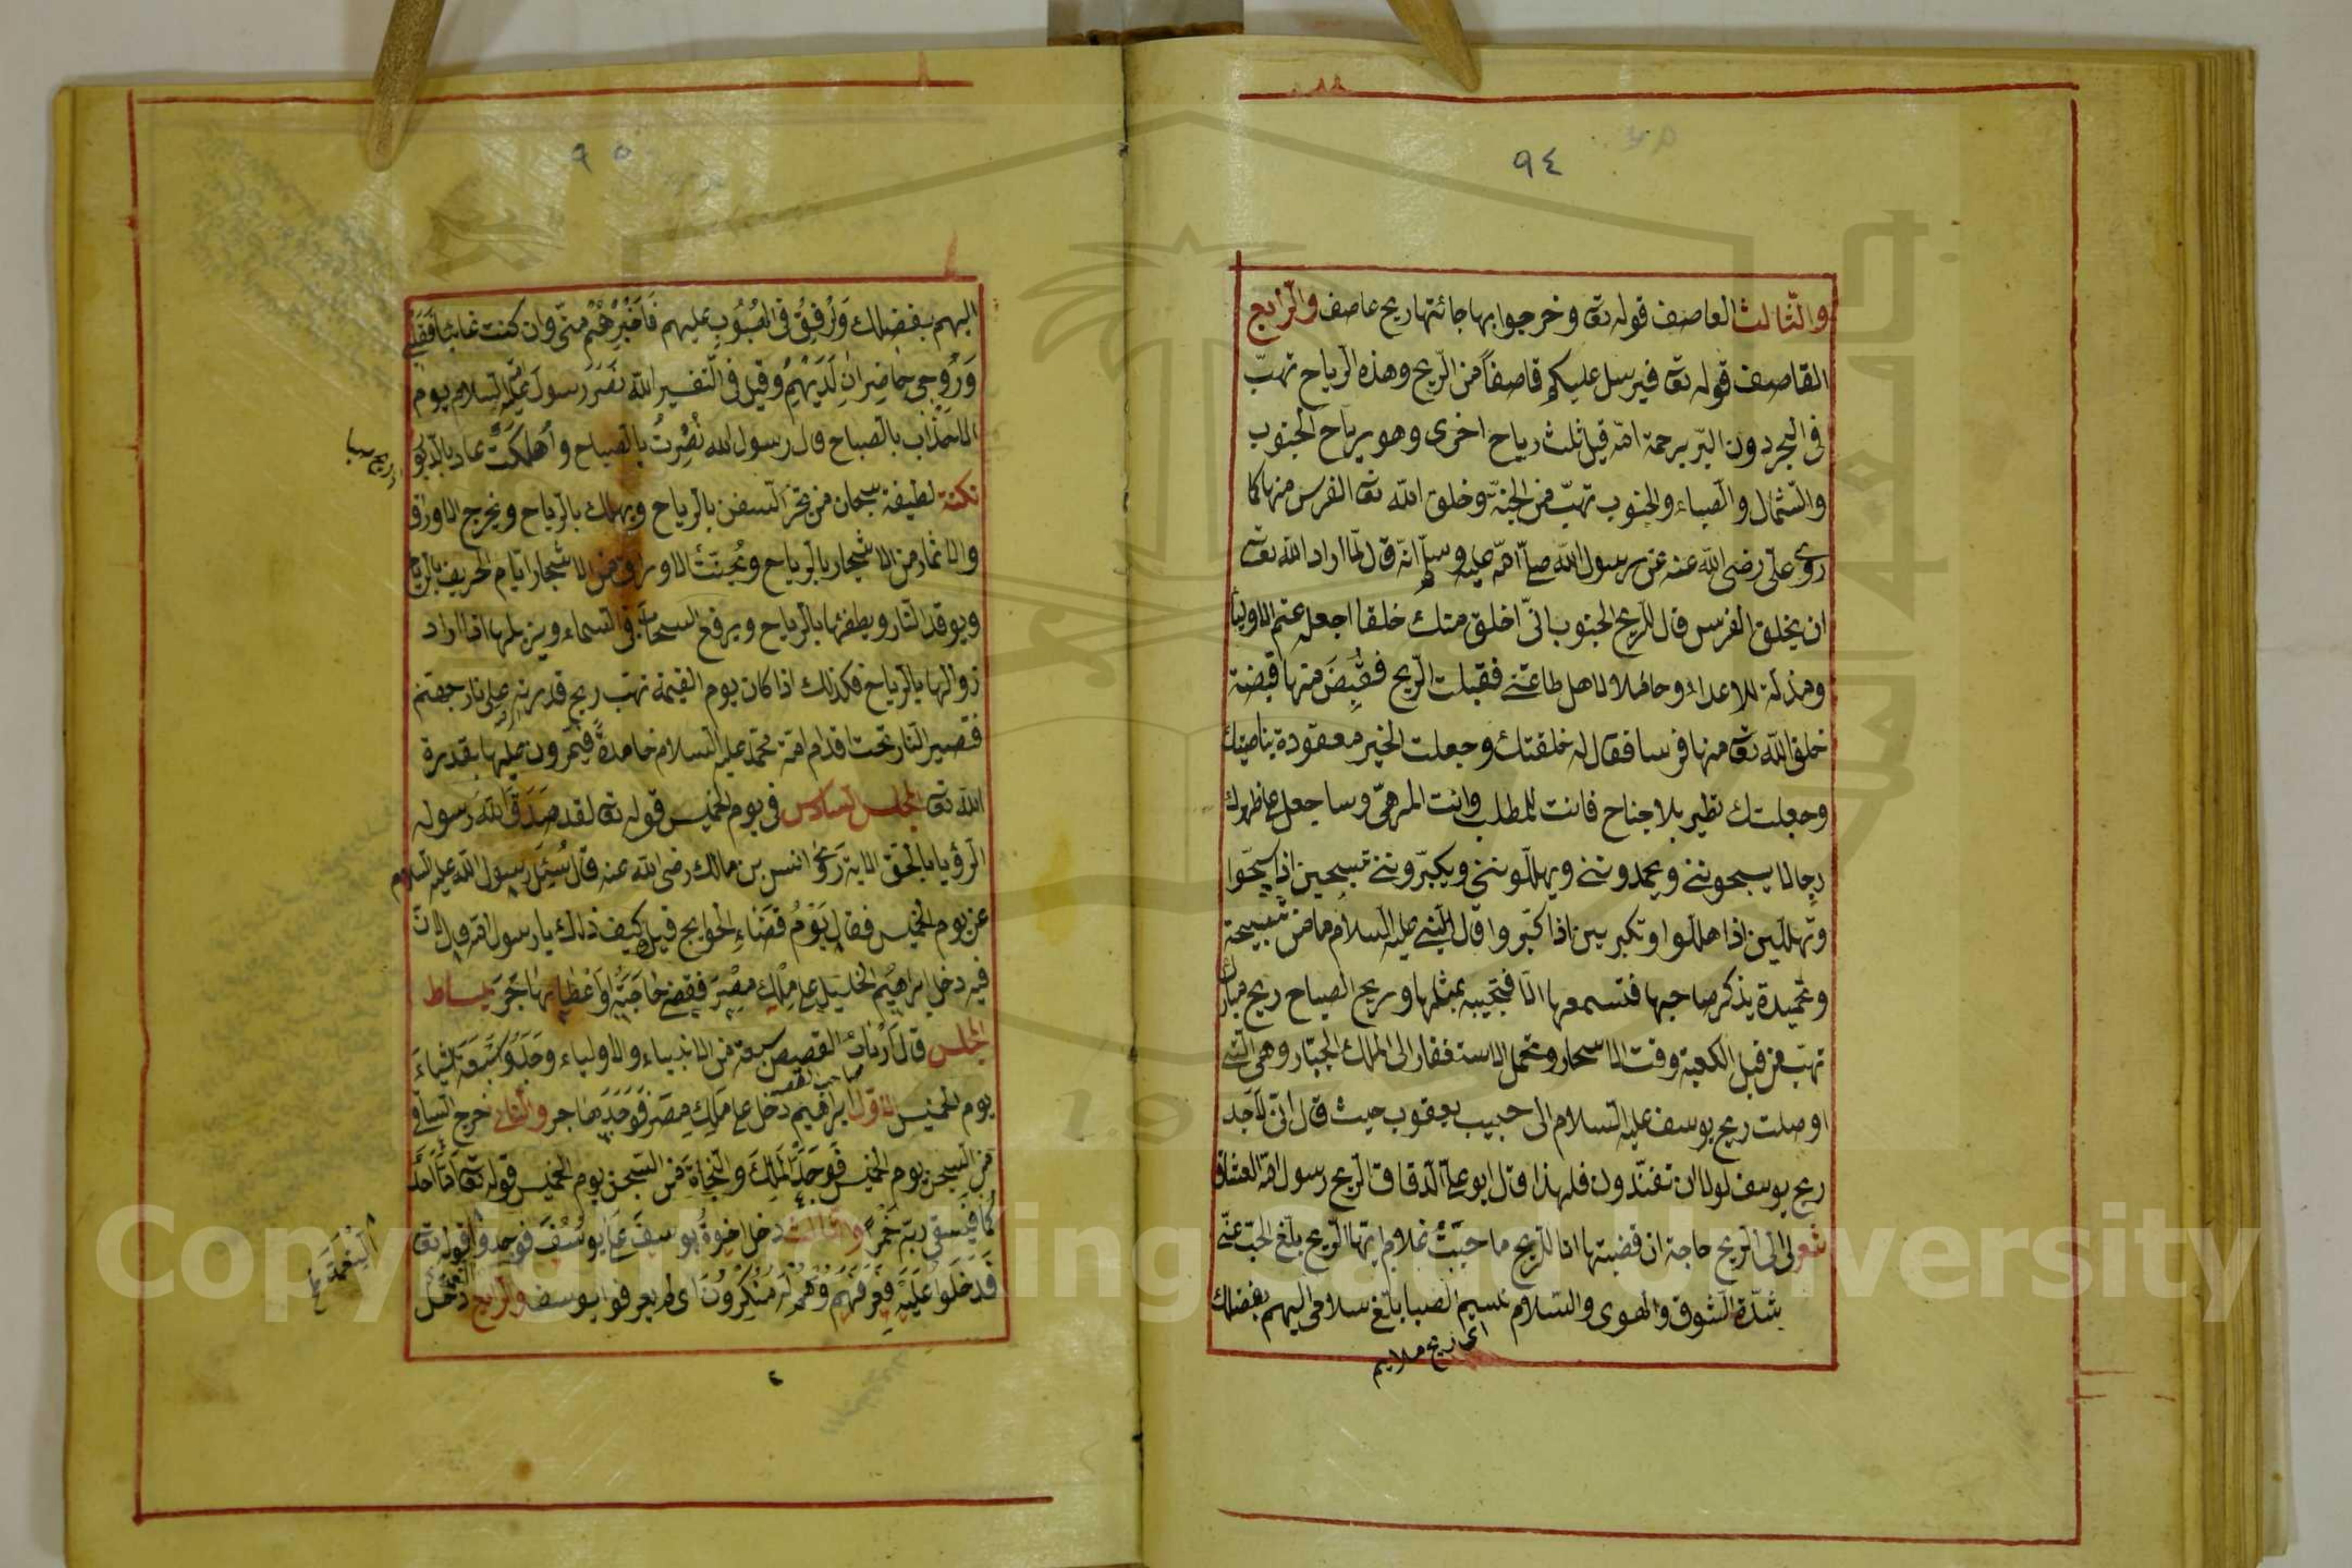 ٩٤
والثالث العاصف قوله تعا وخرجوا بها جائتها ريح عاصف والرابع
القاصف قوله تعا فيرسل عليكم قاصفا من الريح وهذه الرياح تهب
فى البحر دون البر برحمة الله قيل ثلث رياح اخرى وهو رياح الجنوب
والشمال والصباء والجنوب تهب من الجنة وخلق الله تعا الفرس منها كما
روى على رضى الله عنه عن رسول الله صلى الله عليه وسلم انه قال لما اراد الله تعا
ان يخلق الفرس قال للريح الجنوب انى اخلق منك خلقا اجعله عزا للاوليا
ومذلة للاعداء وحاملا لاهل طاعتى فقبلت الريح فقبض منها قبضة
خلق الله تعا منها فرسا فقال له خلقتك وجعلت الخير معقودة بناصيتك
وجعلتك تطير بلا جناح فانت للمطلب وانت المرهى وساجعل على ظهرك
رجالا يسبحوننى ويحمدوننى ويهللوننى ويكبروننى تسبحين اذا سبحوا
وتهللين اذا هللوا وتكبرين اذا كبروا قال النبى عليه السلام ما من تسبيحة
وتحميدة يذكر صاحبها فتسمعها الا فتجيبه بمثلها وريح الصباح ريح مبارك
تهب من قبل الكعبة وقت الاسحار وتحمل الاستغفار الى الملك الجبار وهى التى
اوصلت ريح يوسف عليه السلام الى حبيب يعقوب حيث قال انى لاجد
ريح يوسف لولا ان تفندون فلهذا قال ابو على الدقاق الريح رسول الله العشاق
شعر لى الى الريح حاجة ان قضتها انا للريح ما حييت غلام ايتها الريح بلغ الحب عنى
شدة الشوق والهوى والسلام نسيم الصبا بلغ سلامى اليهم بفضلك
اى ريح ملايم
٩٥
اليهم بفضلك وارفق فى الهبوب عليهم فاخبرهم منى وان كنت غائبا فقل
وروحى حاضران لديهم وقيل فى التفسير الله نصر رسول عليه السلام يوم
الاحزاب بالصباح قال رسول الله نصرت بالصباح واهلكت عاد بالدبو
ريح صبا
نكتة لطيفة سبحان من يجر السفن بالرياح ويهلك بالرياح ويخرج الاوراق
والاثمار من الاشجار بالرياح ويجتث الاوراق من الاشجار ايام الخريف بالرياح
ويوقد النار ويطفئها بالرياح ويرفع السحاب فى السماء وينزيلها اذا اراد
زوالها بالرياح فكذلك اذا كان يوم القيمة تهب ريح قدرته على نار جهنم
فتصير النار تحت اقدام امة محمد عليه السلام خامدة فيمرون عليها بقدرة
الله تعا المجلس السادس فى يوم الخميس قوله تعا لقد صدق الله رسوله
الرؤيا بالحق الاية روى انس بن مالك رضى الله عنه قال سئل رسول الله عليه السلام
عن يوم الخميس فقال يوم قضاء الحوايج قيل كيف ذلك يا رسول الله قال لان
فيه دخل ابراهيم الخليل على ملك مصر فقضى حاجته واعطا بها هاجر بساط
المجلس قال ارباب القصص سبعة من الانبياء والاولياء وجدوا سبعة اشياء
يوم الخميس الاول ابراهيم دخل على ملك مصر فوجد هاجر والثانى خرج الساقى
من السجن يوم الخميس فوجد الملك والنجاة من السجن يوم الخميس قوله تعا اما احد
كما فيسقى ربه خمرا والثالث دخل اخوة يوسف على يوسف فوجدوا قوله تعا
فدخلوا عليه فعرفهم وهم له منكرون اى لم يعرفوا يوسف والرابع دخل